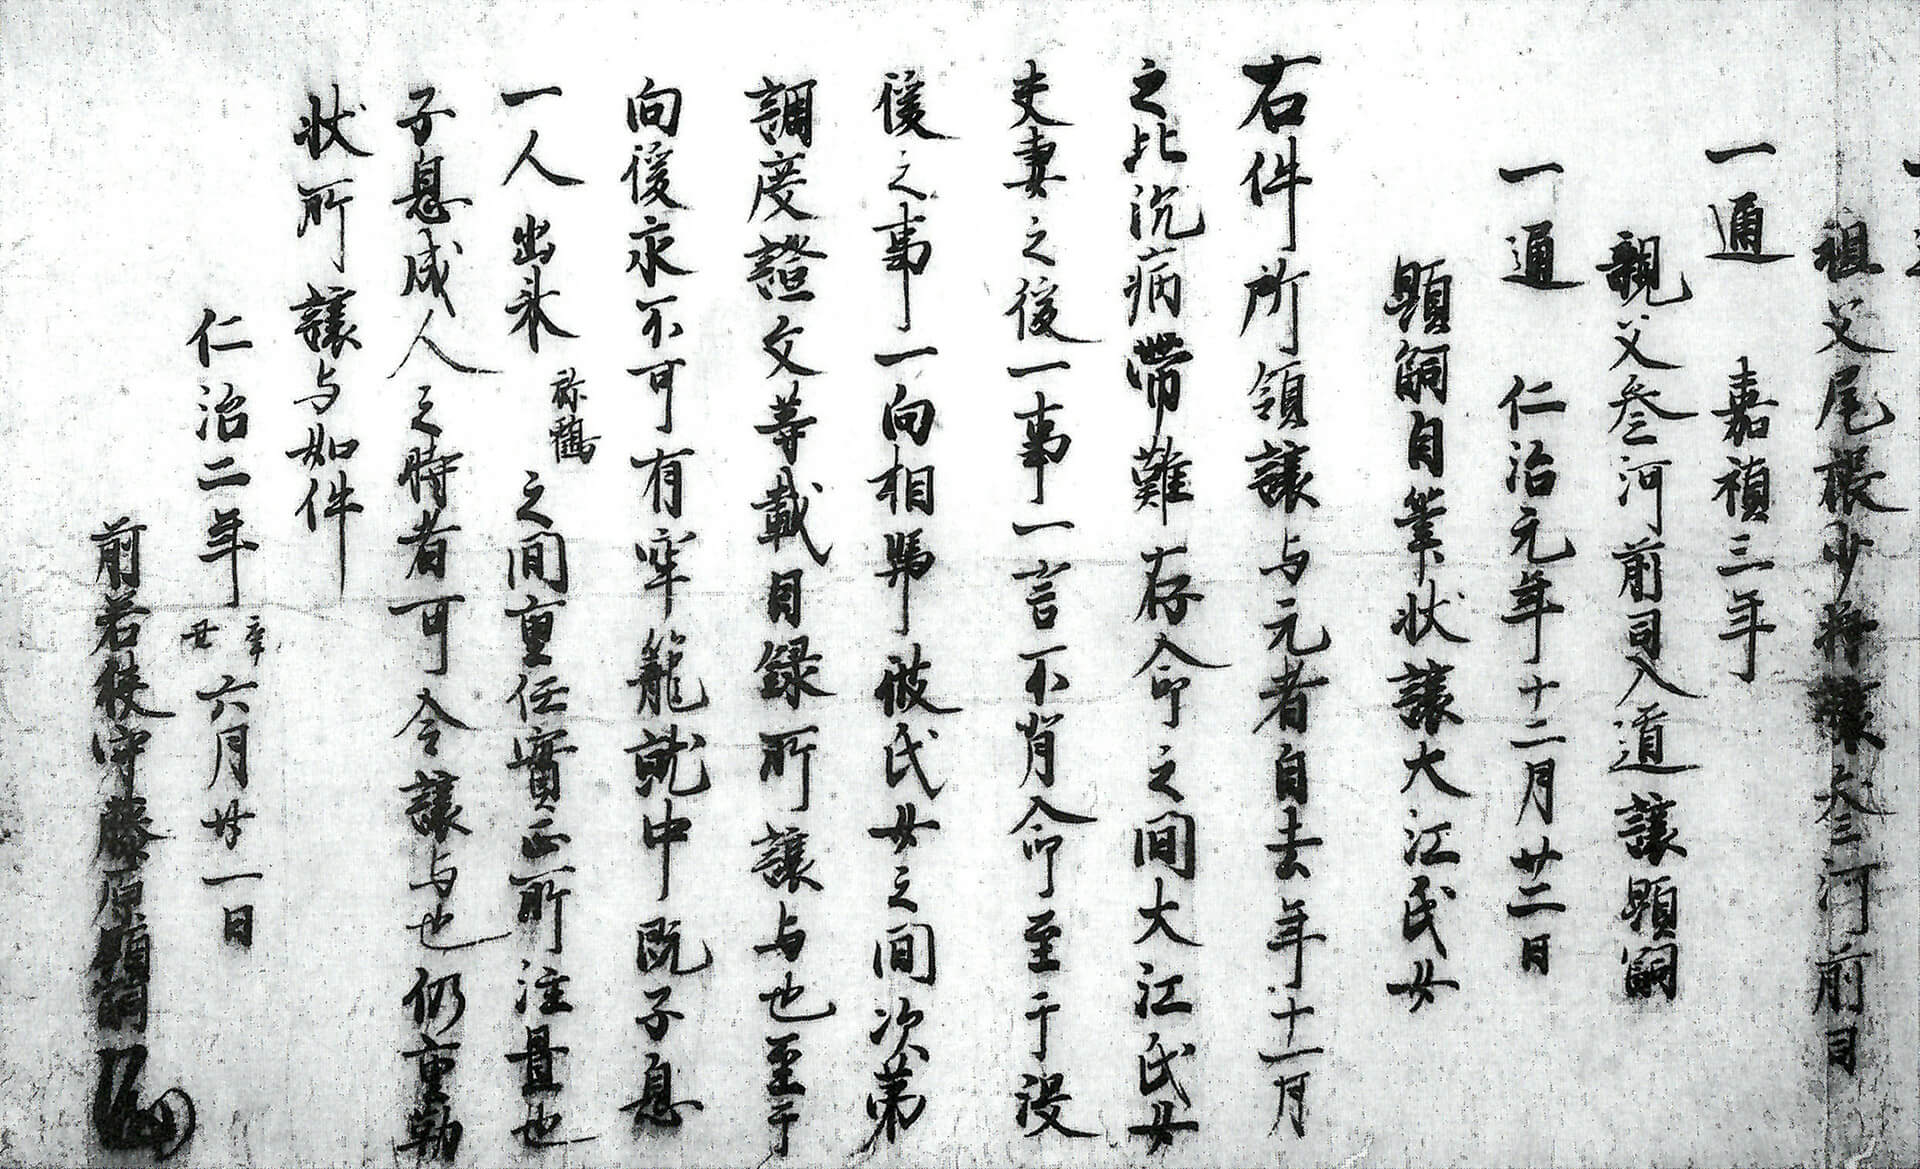 祖父尾張少将譲参河前司
一通 嘉禎三年
親父参河前司入道譲顕嗣
一通 仁治元年十二月廿二日
顕嗣自筆状譲大江氏女
右件所領譲与元者自去年十一月
之比沉病帯難存命之間大江氏女
夫妻之後一事一言不背命至于没
後之事一向相馮彼氏女之間次第
調度證文等載目録所譲与也至于
向後永不可有牢籠就中既子息
一人出来 弥鶴 之間重任實正所注置也
子息成人之時者可令譲与也仍重勒
状所譲与如件
仁治二年 辛丑 六月廿一日
前若狭守藤原顕嗣